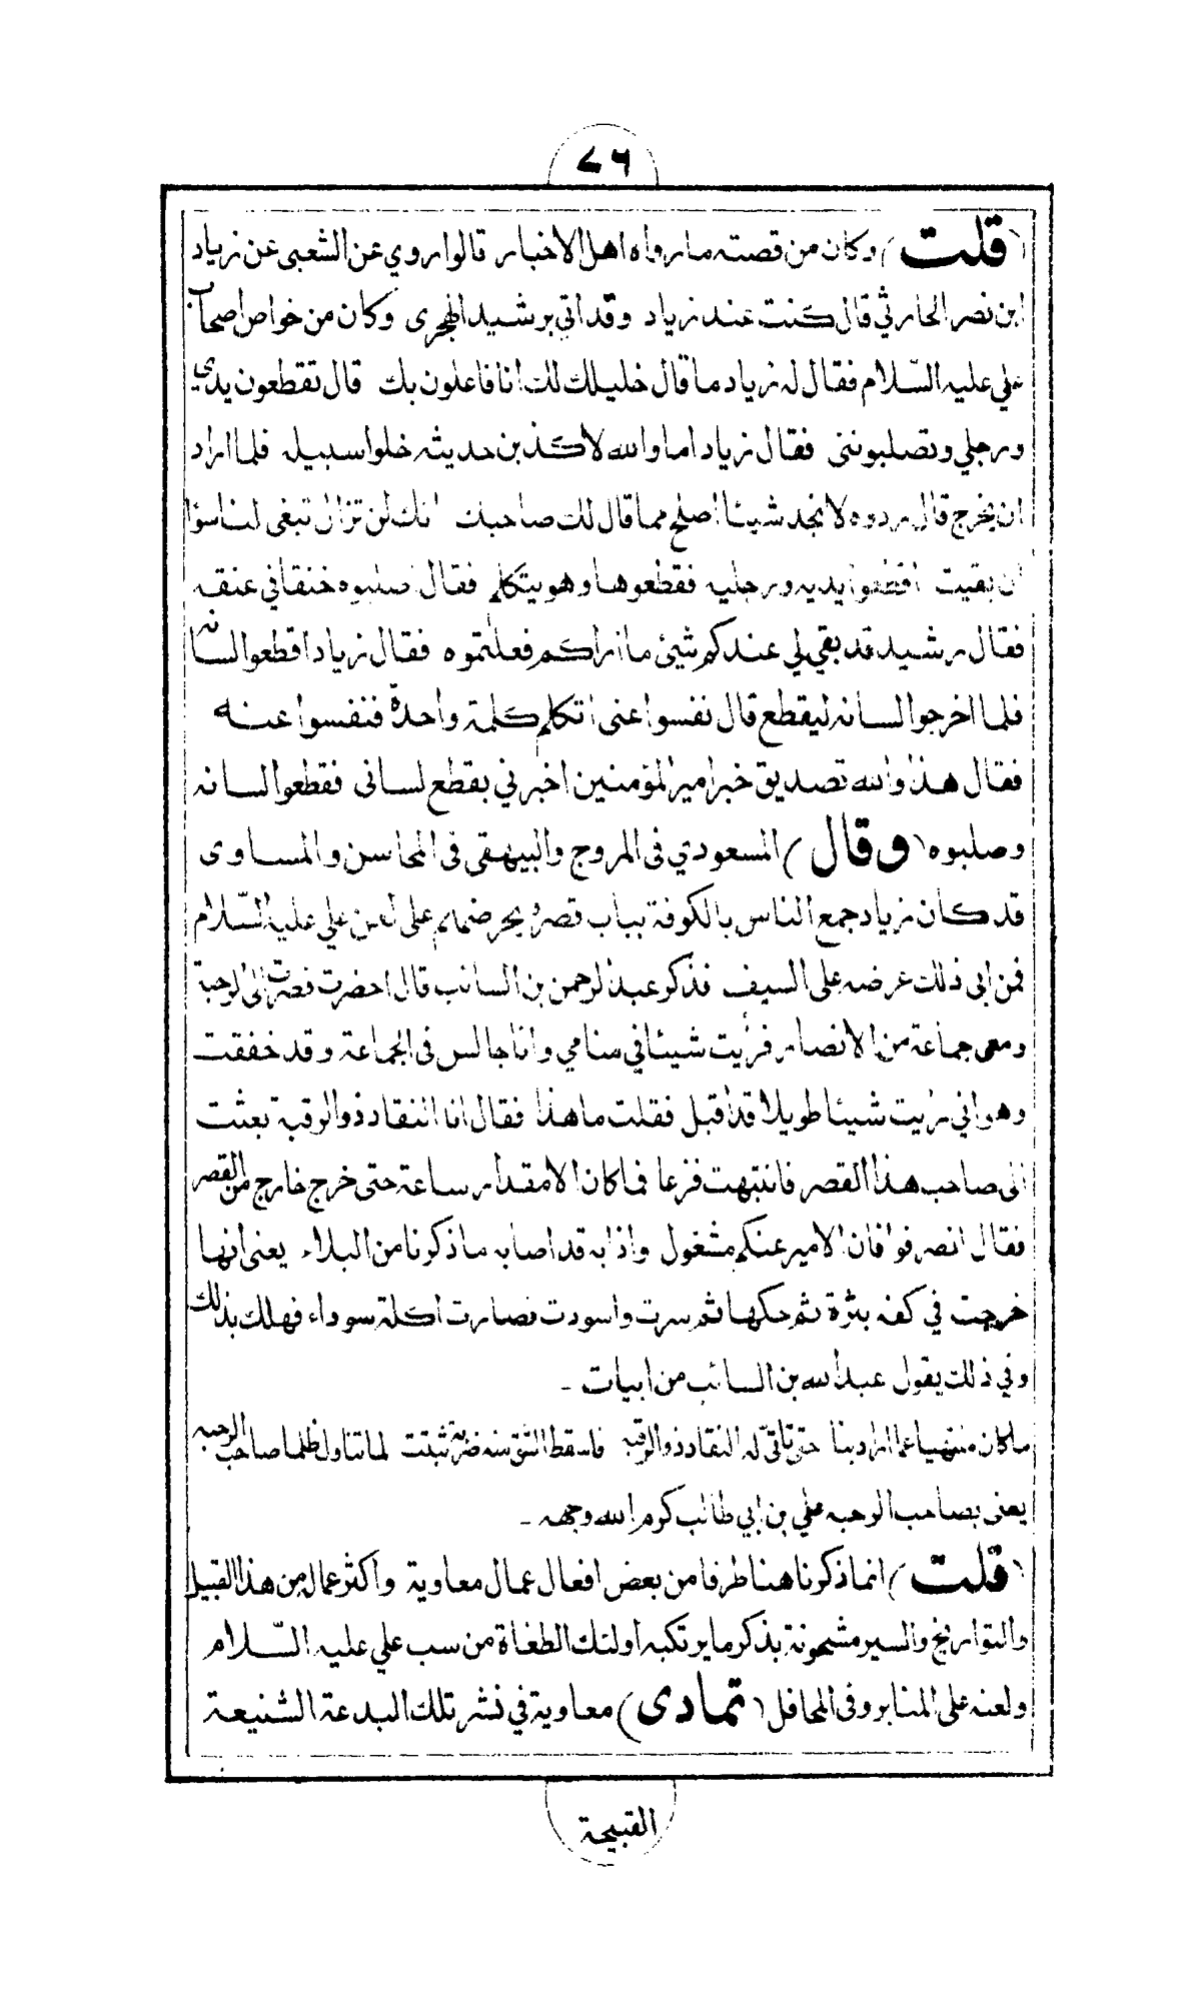 ٧٦
(قلت) وكان من قصته ما رواه اهل الاخبار قالوا روي عن الشعبى عن زياد
ابن نصر الحارثي قال كنت عند زياد وقد اتي برشيد الهجرى وكان من خواص اصحاب
علي عليه السّلام فقال له زياد ما قال خليلك لك انا فاعلون بك قال تقطعون يدي
ورجلي وتصلبوننى فقال زياد اما والله لاكذبن حديثه خلوا سبيله فلما اراد
ان يخرج قال ردوه لا نجد شيئا اصلح مما قال لك صاحبك انك لن تزال تبغى لنا سؤا
ان بقيت اقطعوا يديه ورجليه فقطعوها وهو يتكلم فقال اصلبوه خنقا في عنقه
فقال رشيد قد بقي لي عندكم شيئ ما اراكم فعلتموه فقال زياد اقطعوا لسانه
فلما اخرجوا لسانه ليقطع قال نفسوا عنى اتكلم كلمة واحدة فنفسوا عنه
فقال هذا والله تصديق خبر امير المؤمنين اخبرني بقطع لسانى فقطعوا لسانه
وصلبوه (وقال) المسعودي فى المروج والبيهقى فى المحاسن والمساوى
قد كان زياد جمع الناس بالكوفة بباب قصره يحرضهم على لعن علي عليه السّلام
فمن ابى ذلك عرضه على السيف فذكر عبد الرحمن بن السائب قال احضرت فصرت الى الرحبة
ومعى جماعة من الانصار فرأيت شيئا في منامي وانا جالس فى الجماعة وقد خفقت
وهو اني رايت شيئا طويلا قد اقبل فقلت ما هذا فقال انا النقاد ذو الرقبة بعثت
الى صاحب هذا القصر فانتبهت فزعا فما كان الا مقدار ساعة حتى خرج خارج من القصر
فقال انصرفوا فان الامير عنكم مشغول واذا به قد اصابه ما ذكرنا من البلاء يعنى انها
خرجت في كفه بثرة ثم حكها ثم سرت واسودت فصارت اكلة سوداء فهلك بذلك
وفي ذلك يقول عبد الله بن السائب من ابيات -
ما كان منتهيا عما اراد بنا حتى تأتّى له النقاد ذو الرقبه فاسقط الشق منه ضربة ثبتت لما تناول ظلما صاحب الرحبه
يعنى بصاحب الرحبه علي بن ابي طالب كرم الله وجهه -
(قلت) انما ذكرنا هنا طرفا من بعض افعال عمال معاوية واكثر عماله من هذا القبيل
والتواريخ والسير مشحونة بذكر ما يرتكبه اولئك الطغاة من سب علي عليه السّلام
ولعنه على المنابر وفى المحافل (تمادى) معاوية في نشر تلك البدعة الشنيعة
القبيحة